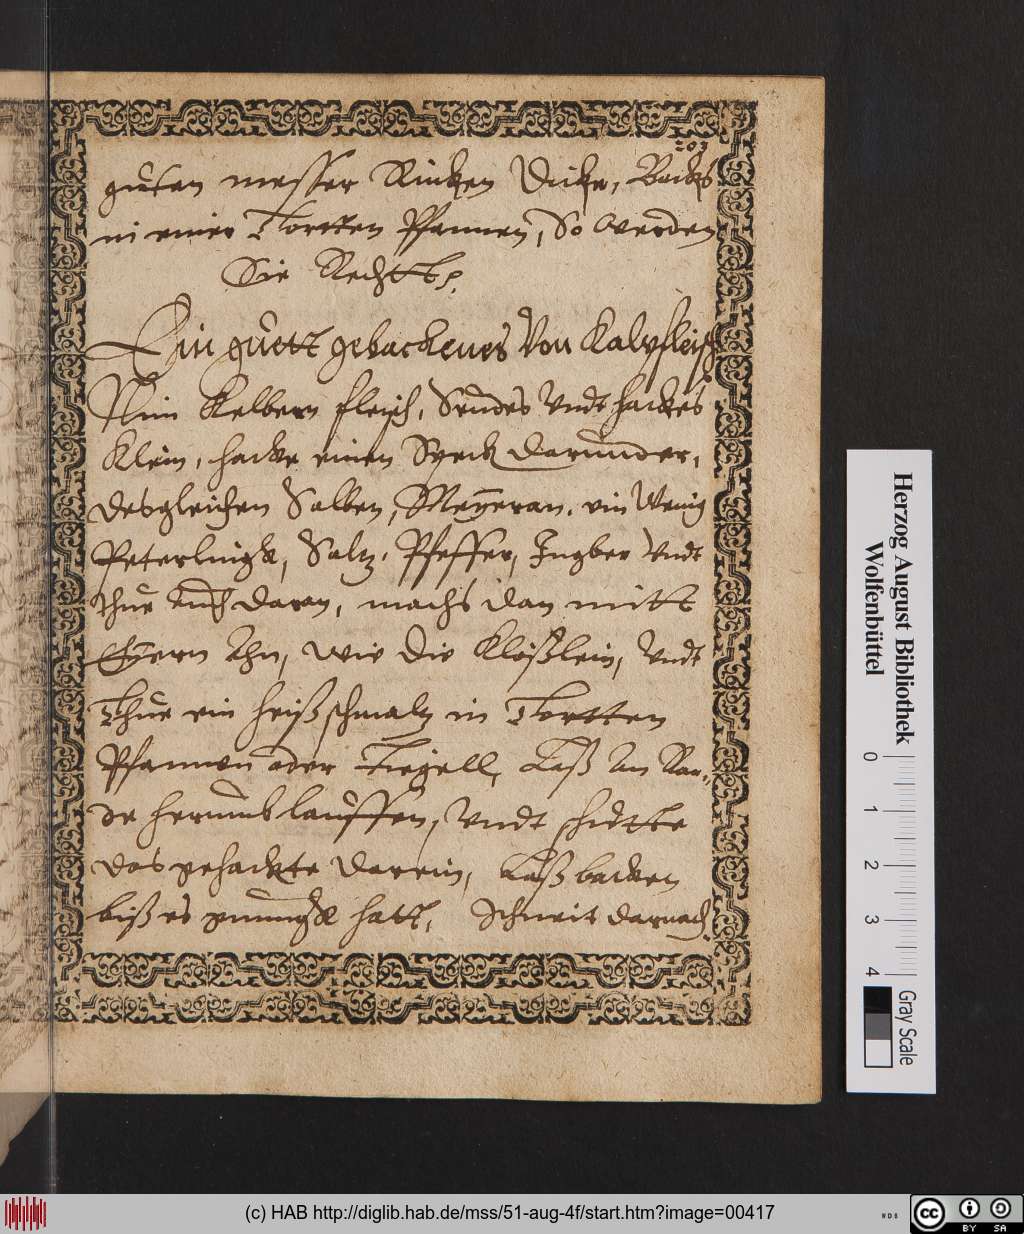 203
guten messer Rücken Dicke, Backs
in einer Tortten Pfannen, So Werden
Sie Rechtt.
Ein guett gebackenes Von Kalbfleisch
Nim Kelbern fleisch, Vndt hackes
Klein, hacke einen Speck darunder,
desgleichen Salben, Meyeran, ein Wenig
Peterling, Saltz, Pfeffer, Ingber Vndt
thue auch daran, machs dan mitt
Eyern Ahn, wie die Klößlein, Vndt
Thue ein heiß schmaltz in Tortten
Pfannen oder Tiegell, Laß Am Ran-
de herumb lauffen, Vndt schütte
das gehackte darein, Laß backen
biß es genung hatt, Schneit darnach
Herzog August Bibliothek
Wolfenbüttel
0 1 2 3 4
Gray Scale
(c) HAB http://diglib.hab.de/mss/51-aug-4f/start.htm?image=00417
WDB
cc
BY SA